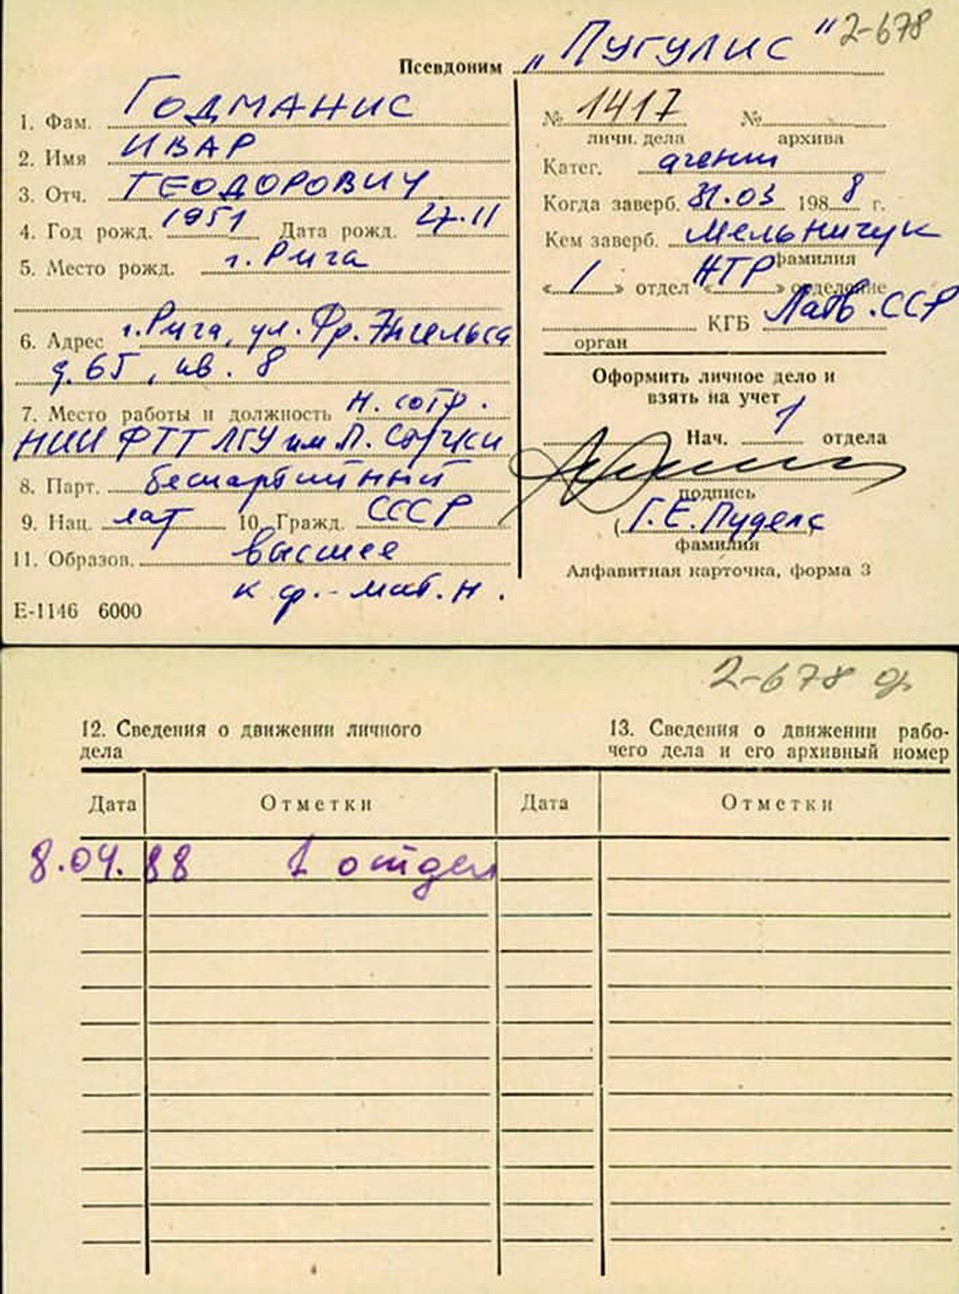 2-678
Псевдоним „Пугулис“
1. Фам. Годманис
2. Имя Ивар
3. Отч. Теодорович
4. Год рожд. 1951 Дата рожд. 27.11
5. Место рожд. г. Рига
6. Адрес г. Рига, ул. Фр. Энгельса
д. 65, кв. 8
7. Место работы и должность н. сотр.
НИИ ФТТ ЛГУ им П. Стучки
8. Парт. беспартийный
9. Нац. лат 10. Гражд. СССР
11. Образов. высшее
к ф.-мат. н.
Е-1146 6000
№ 1417 №
личн. дела архива
Катег. агент
Когда заверб. 31.03 1988 г.
Кем заверб. Мельничук
фамилия
« 1 » отдел « НТР » отделение
КГБ Латв. ССР
орган
Оформить личное дело и
взять на учет
Нач. 1 отдела
подпись
(Г. Е. Пуделс)
фамилия
Алфавитная карточка, форма 3
2-678
12. Сведения о движении личного
дела
13. Сведения о движении рабо-
чего дела и его архивный номер
Дата Отметки Дата Отметки
8.04.88 1 отдел